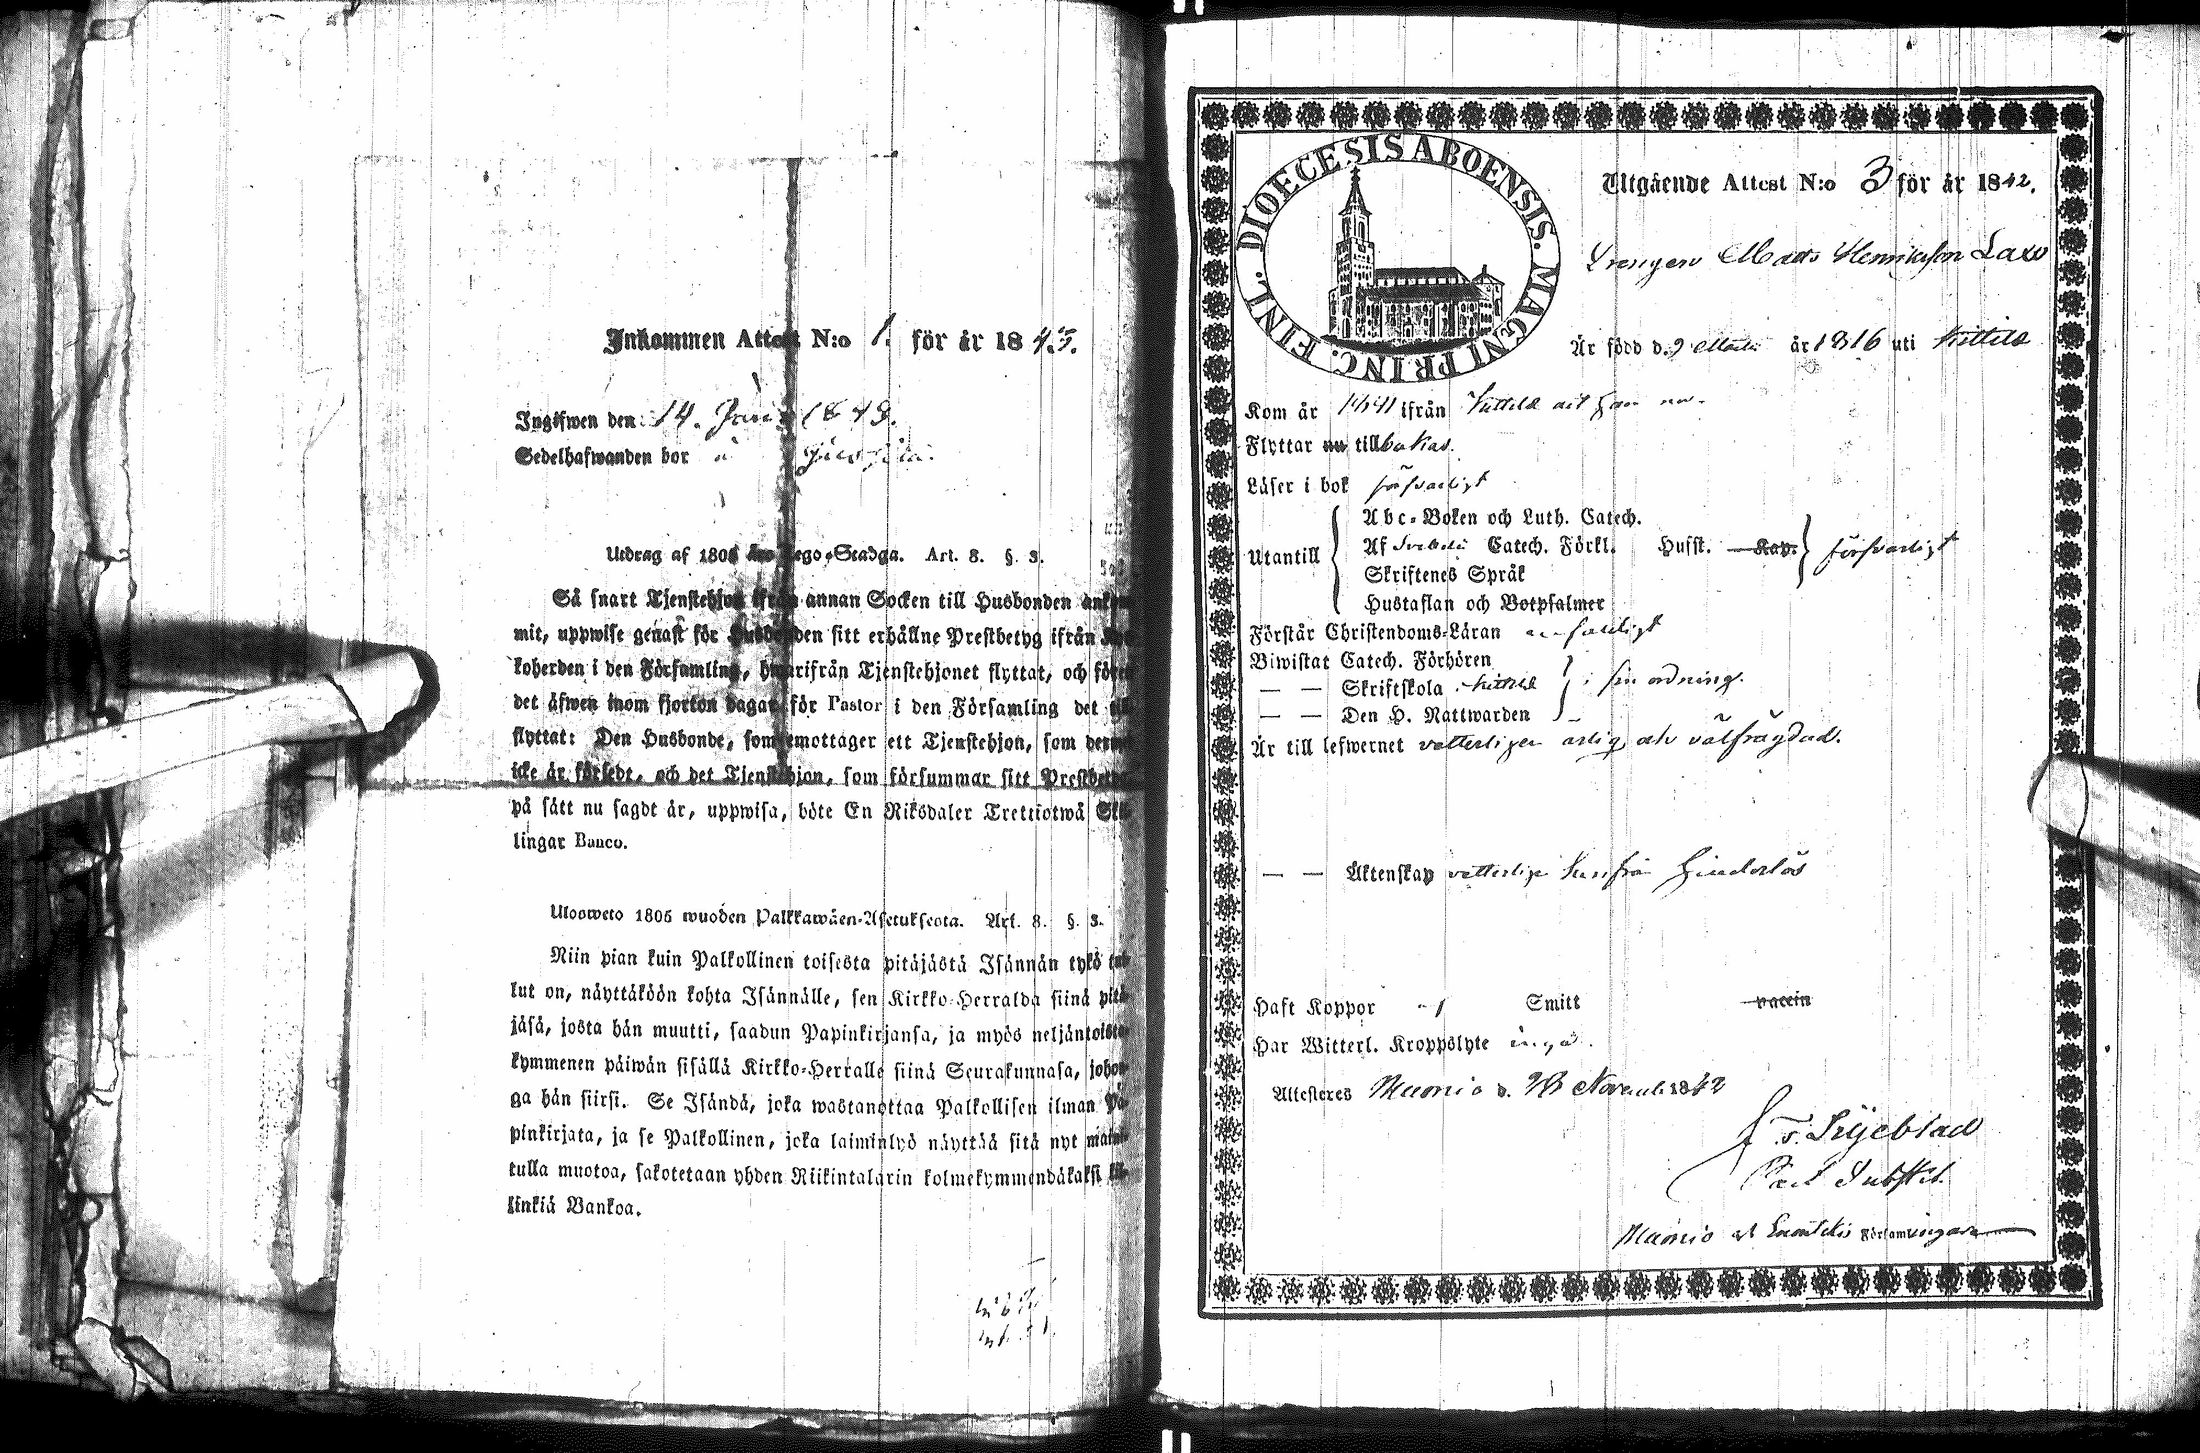 Inkommen Attest N:o 1. för år 1843.
Ingifwen den 14. Juni 1843.
Sedelhafwanden bor i
Utdrag af 1805 års Lego-Stadga. Art. 8. §. 3.
Så snart Tjenstehjon ifrån annan Socken till Husbonden ankom-
mit, uppwise genast för Husbonden sitt erhållne Prestbetyg ifrån
koherden i den Församling, hwarifrån Tjenstehjonet flyttat, och före
det äfwen inom fjorton dagar för Pastor i den Församling det
flyttat: Den Husbonde, som emottager ett Tjenstehjon, som dermed
icke är försedt, och det Tjenstehjon, som försummar sitt Prestbetyg
på sätt nu sagdt är, uppwisa, böte En Riksdaler Trettiotwå Skil-
lingar Banco.
Ulosweto 1805 wuoden Palkkawäen-Asetuksesta. Art. 8. §. 3.
Niin pian kuin Palkollinen toisesta pitäjästä Isännän tykö tul-
lut on, näyttäköön kohta Isännälle, sen Kirkko-Herralda siinä pitä-
jäsä, josta hän muutti, saadun Papinkirjansa, ja myös neljäntoista-
kymmenen päiwän sisällä Kirkko-Herralle siinä Seurakunnasa, johon-
ga hän siirsi. Se Isändä, joka wastanottaa Palkollisen ilman Pa-
pinkirjata, ja se Palkollinen, joka laiminlyö näyttää sitä nyt mainit-
tulla muotoa, sakotetaan yhden Riikintalarin kolmekymmendäkaksi kil-
linkiä Bankoa.
DIOECESIS ABOENSIS. MAGNI PRINC. FINL.
Utgående Attest N:o 3 för år 1842.
Drengen Mats Henriksson Laxo
Är född d. 9 år 1816 uti Kittilä
Kom år 1841 ifrån Kittilä dit han nu
Flyttar nu tillbakas.
Läser i bok försvarligt
Utantill
Abc-Boken och Luth. Catech.
Af Svebelii Catech. Förkl. Husst. Kap.
Skriftenes Språk
Hustaflan och Botpsalmer
försvarligt
Förstår Christendoms-Läran enfaldigt
Biwistat Catech. Förhören
— — Skriftskola Kittilä
— — Den H. Nattwarden
i sin ordning.
Är till lefwernet vetterligen ärlig och välfrägdad.
— — Äktenskap vetterligen hinderlös
Haft Koppor ej Smitt vaccin
Har Witterl. Kroppslyte inga.
Attesteres Muonio d. 28 Novemb 1842
Liljeblad
Past Substit.
Muonio och Enontekis Församlingar